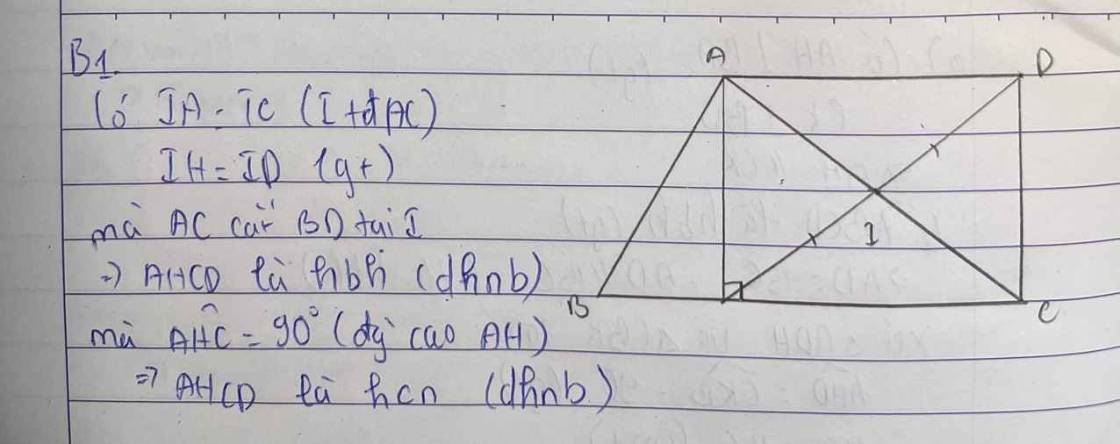 B1.
Có IA = IC (I tđ AC)
IH = ID (gt)
mà AC cắt BD tại I
=> AHCD là hbh (dhnb)
mà AHC = 90° (đg cao AH)
=> AHCD là hcn (dhnb)
A
D
I
B
C